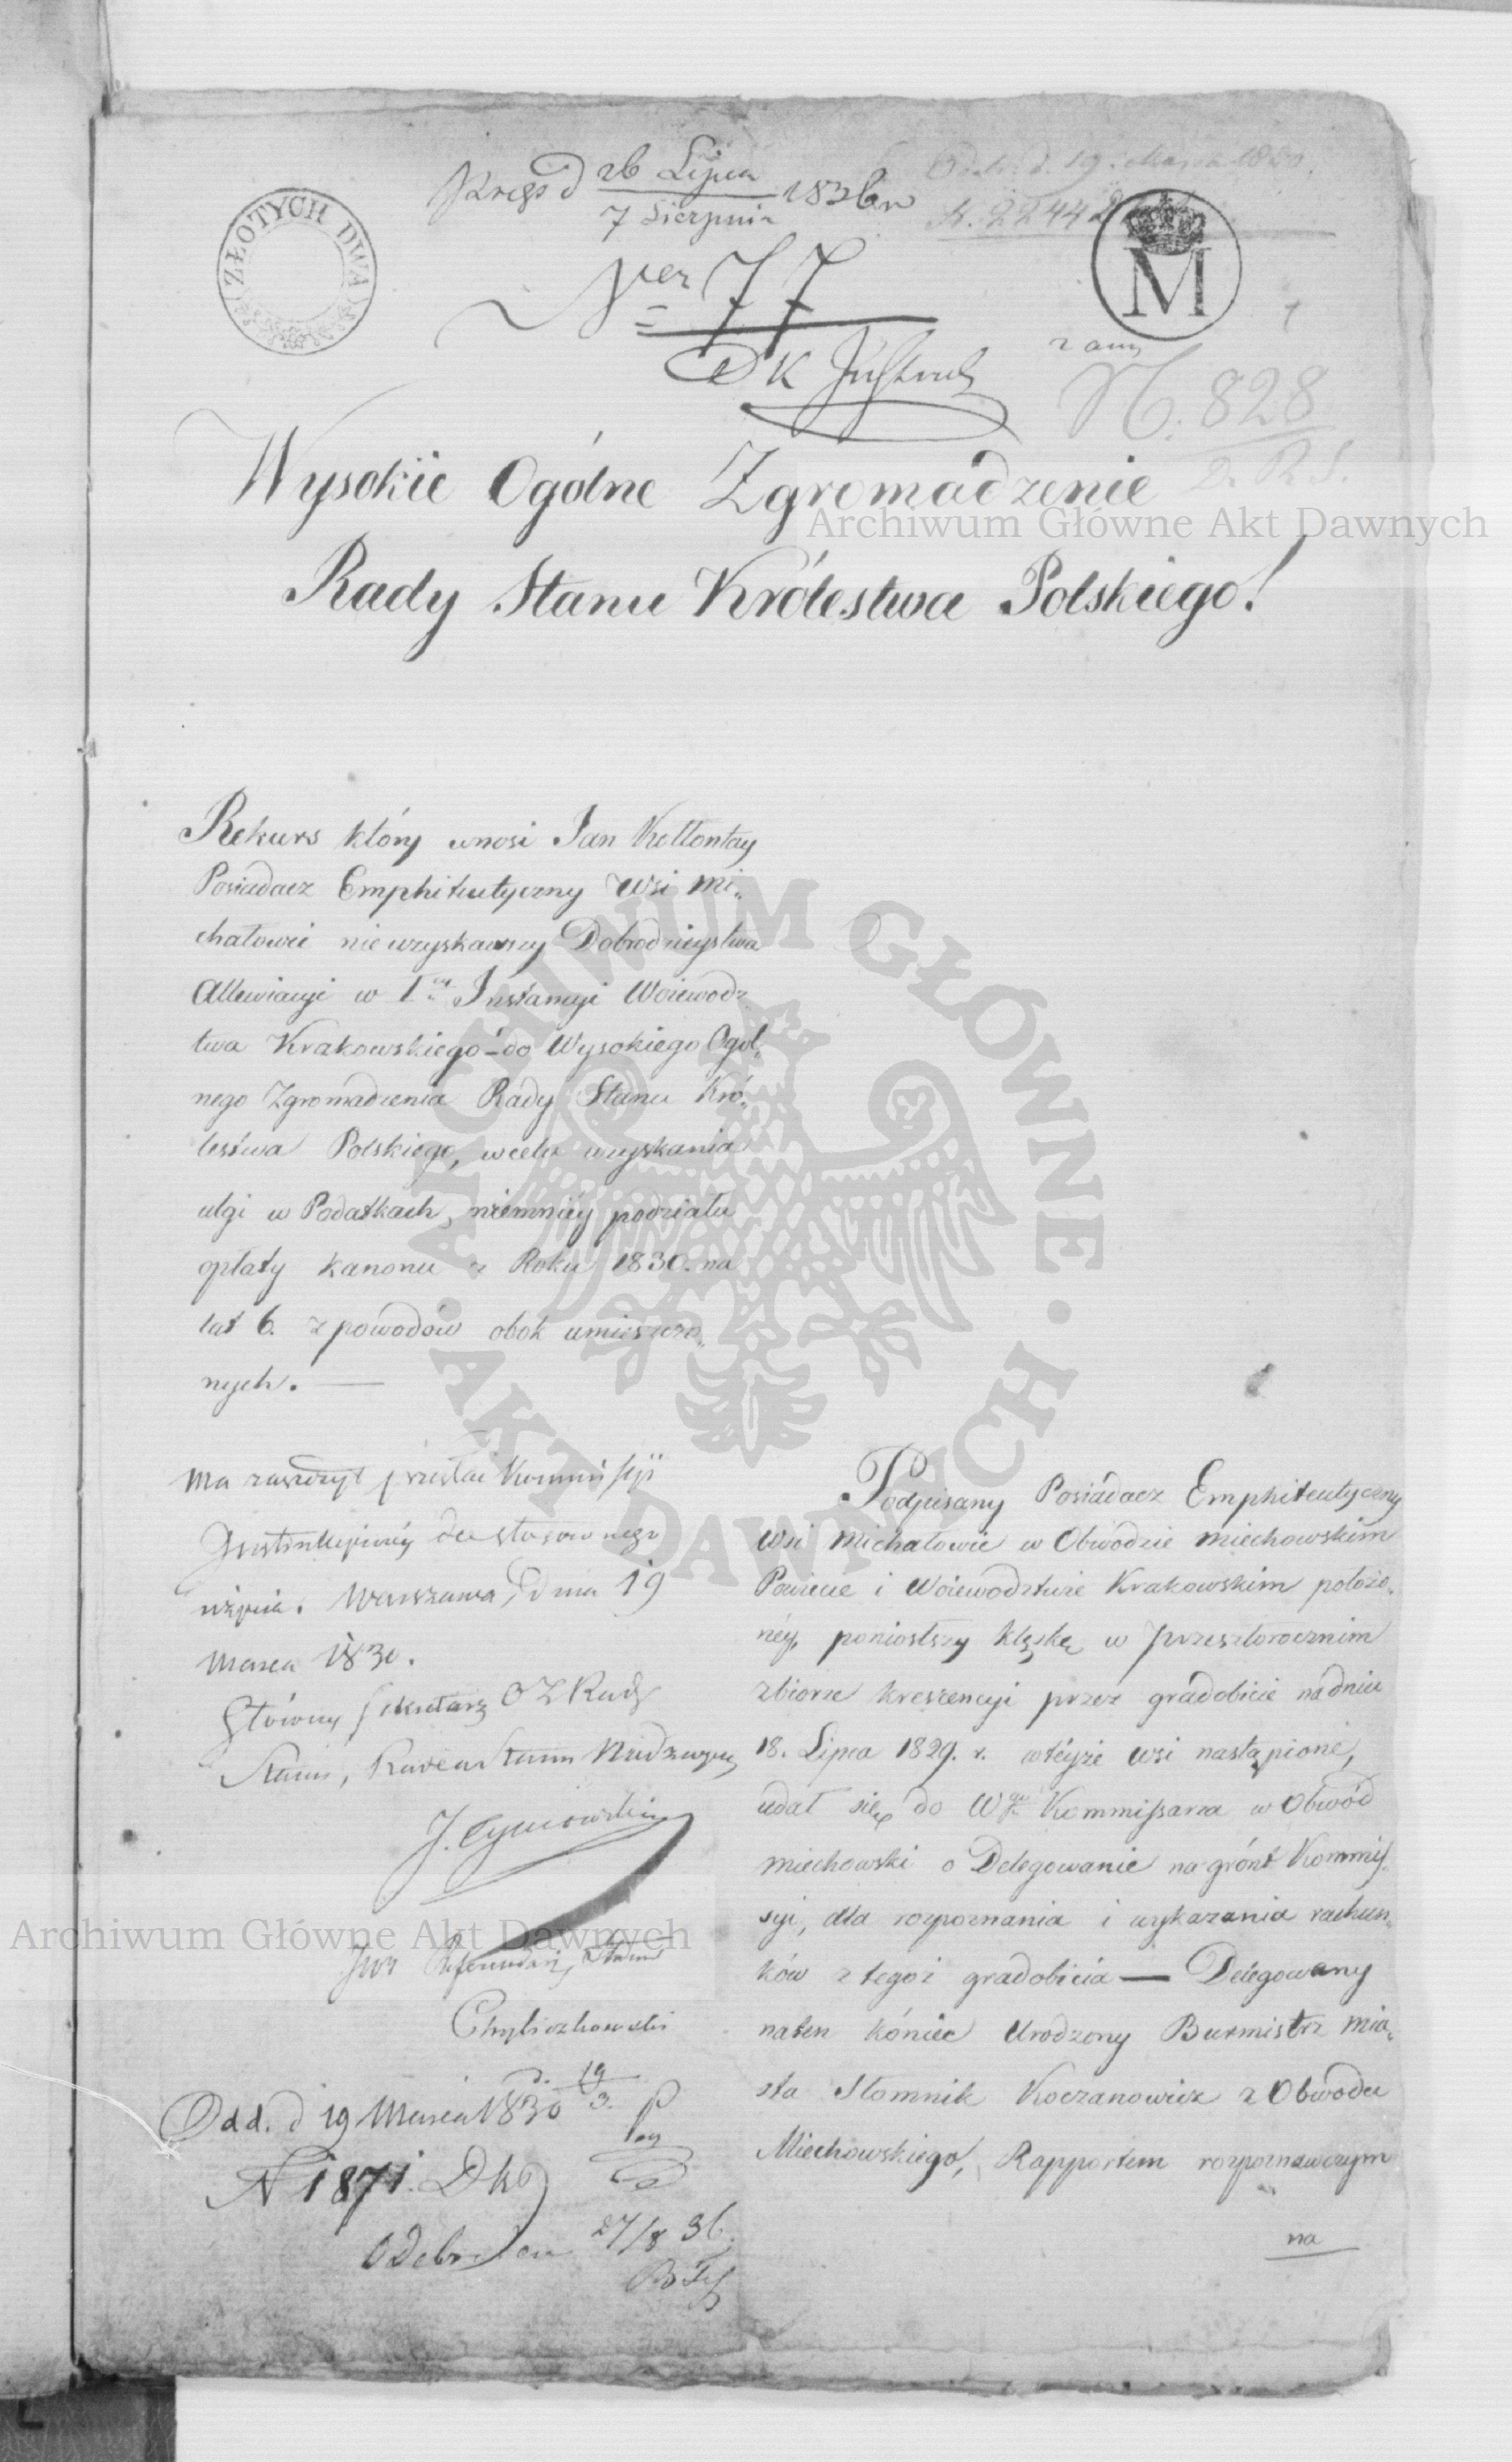 26 Lipca
7 Sierpnia 1836 r
Odeb. d. 19. Marca 1830.
N. 22442
ZŁOTYCH DWA
M
Ner 77
N. 828
D. R. S.
Wysokie Ogólne Zgromadzenie
Archiwum Główne Akt Dawnych
Rady Stanu Królestwa Polskiego!
Rekurs który wnosi Jan Kołłontay
Posiadacz Emphiteutyczny Wsi Mi„
chałowic nie uzyskawszy Dobrodzieystwa
Allewiacyi w Iey Instancyi Woiewodz
twa Krakowskiego – do Wysokiego Ogól„
nego Zgromadzenia Rady Stanu Kró„
lestwa Polskiego, wcelu uzyskania
ulgi w Podatkach, niemniéy podziału
opłaty kanonu z Roku 1830. na
lat 6. z powodów obok umieszczo„
nych. —
ARCHIWUM GŁÓWNE · AKT DAWNYCH ·
Ma zaszczyt przesłać Kommissyi
Instrukcyinéy do stosownego
użycia. Warszawa, Dnia 19
Marca 1830.
Główny Sekretarz O Z Rady
Stanu, Referendarz Nadzwyczayny
Archiwum Główne Akt Dawnych
Referendarz Stanu
Chyliczkowski
Odd. d 19 Marca 1830
19
3.
N 1871. Dko
Odebrałem 27/8 36.
Podpisany Posiadacz Emphiteutyczny
Wsi Michałowic w Obwodzie Miechowskim
Powiecie i Woiewodztwie Krakowskim położo„
néy, poniosłszy klęskę w przeszłorocznim
zbiorze krescencyi przez gradobicie na dniu
18. Lipca 1829. r. w téyże wsi nastąpione,
udał się do Wgo Kommissarza w Obwód
Miechowski o Delegowanie na grónt Kommis„
syi, dla rozpoznania i wykazania rachun„
ków z tegoż gradobicia — Delegowany
na ten koniec Urodzony Burmistrz Mia„
sta Słomnik Koczanowicz z Obwodu
Miechowskiego, Rapportem rozpoznawczym
na